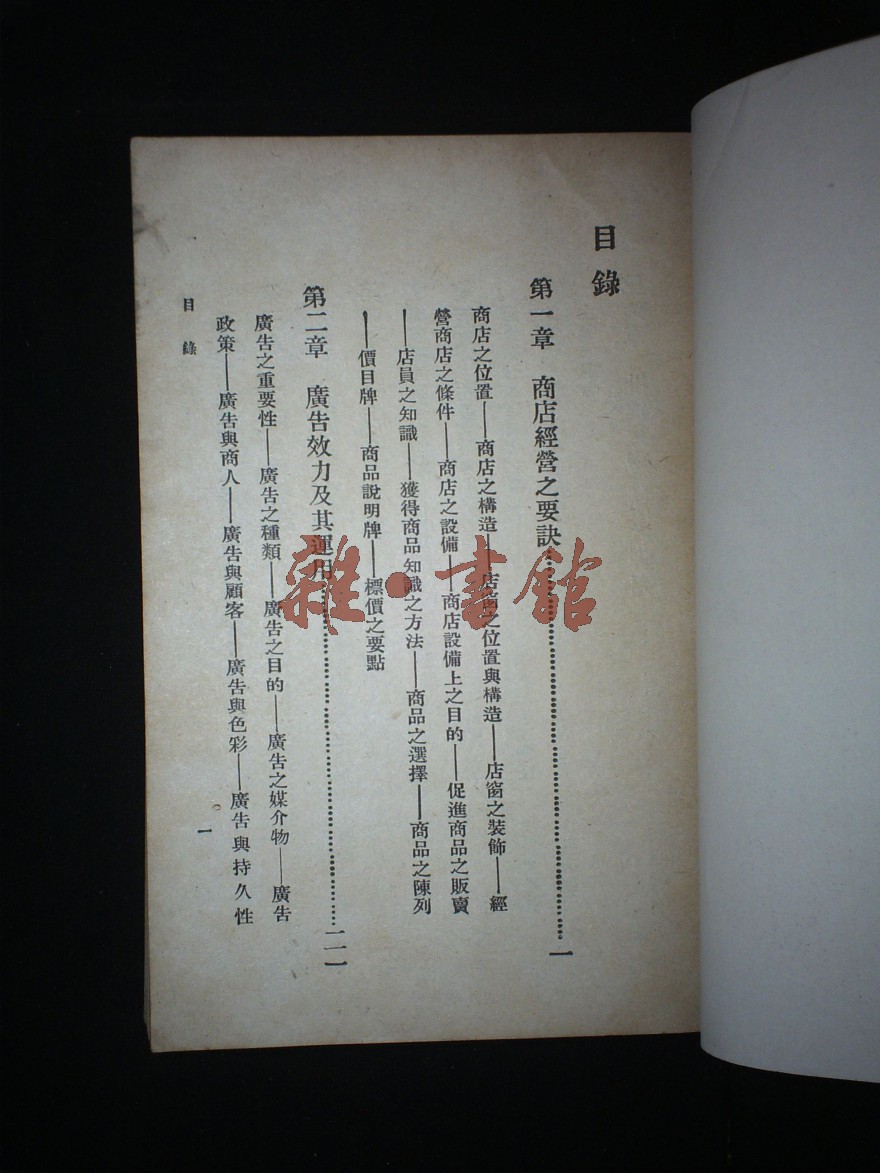 目錄
第一章　商店經營之要訣……一
商店之位置——商店之構造——店窗之位置與構造——店窗之裝飾——經
營商店之條件——商店之設備——商店設備上之目的——促進商品之販賣
——店員之知識——獲得商品知識之方法——商品之選擇——商品之陳列
——價目牌——商品說明牌——標價之要點
第二章　廣告效力及其運用……二一
廣告之重要性——廣告之種類——廣告之目的——廣告之媒介物——廣告
政策——廣告與商人——廣告與顧客——廣告與色彩——廣告與持久性
目錄
一
雜·書館